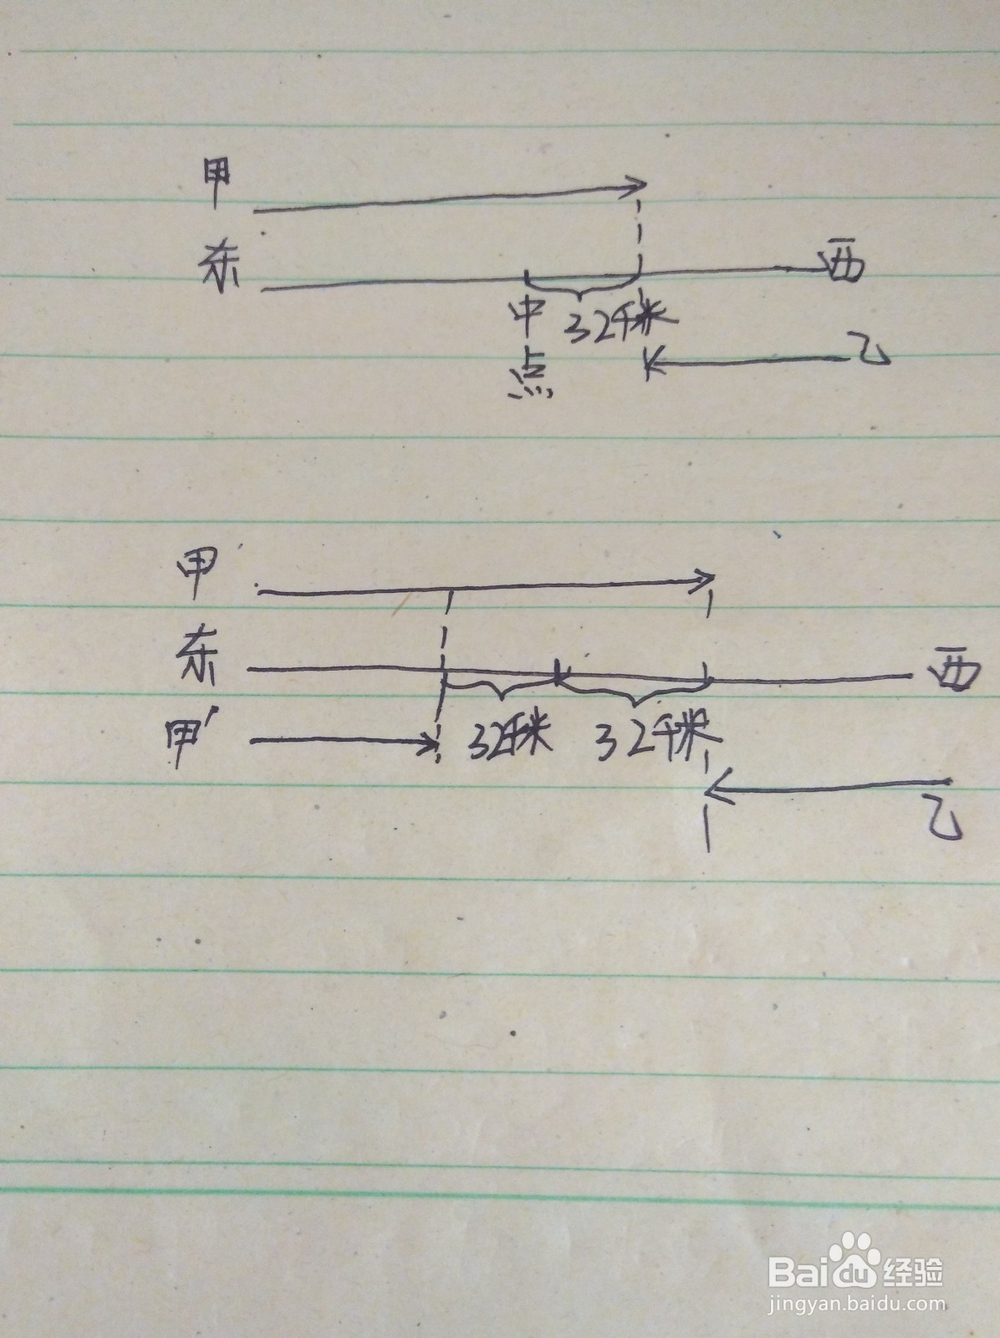 甲
东 西
中点 32千米
乙
甲
东 西
甲' 32千米 32千米
乙
Baidu 经验
jingyan.baidu.com